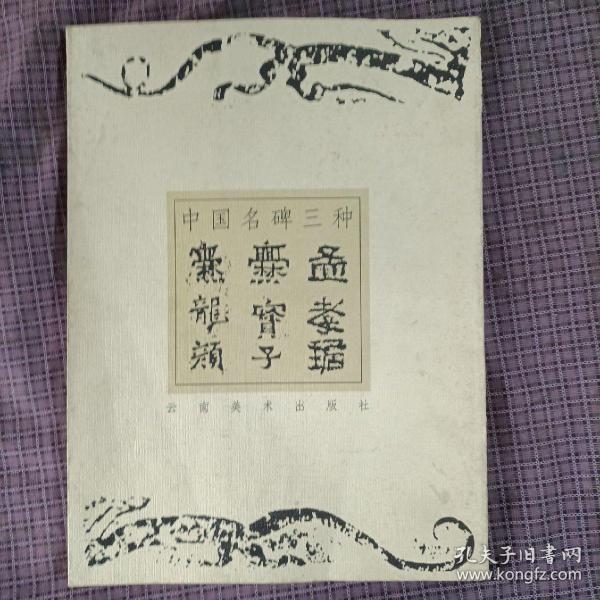 中国名碑三种
孟孝琚
爨寳子
爨龍顔
云南美术出版社
孔夫子旧书网
www.kongfz.com